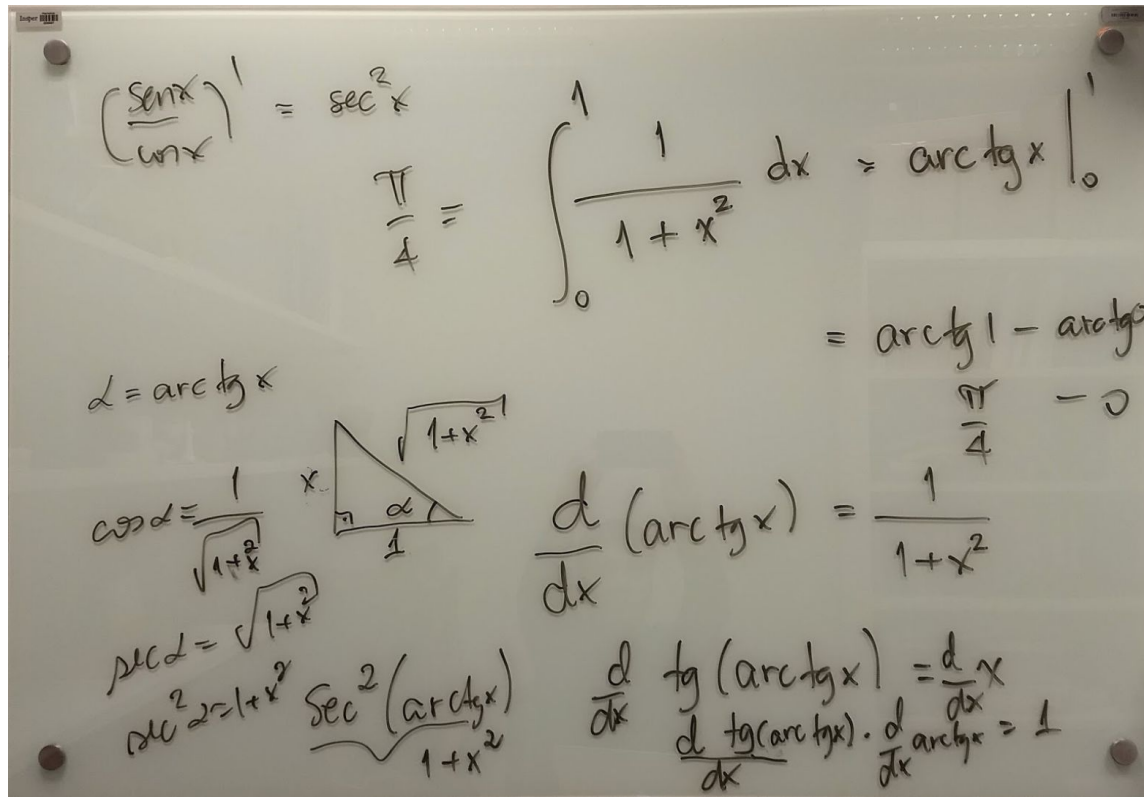 Insper
(senx/cosx)' = sec²x
π/4 = ∫₀¹ 1/(1+x²) dx = arc tg x |₀¹
= arctg 1 − arctg0
π/4 − 0
α = arc tg x
cos α = 1/√(1+x²)
x
√(1+x²)
α
1
sec α = √(1+x²)
sec²α = 1+x²
Sec²(arctgx)
1+x²
d/dx (arc tg x) = 1/(1+x²)
d/dx tg(arctgx) = d/dx x
d tg(arc tgx)/dx · d/dx arctgx = 1